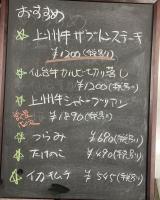 おすすめ
上州牛 ザブトンステーキ
¥1200(税別)
仙台牛カルビ切り落し
¥1200(税別)
上州牛シャトーブリアン
¥1890(税別)
つらみ ¥690(税別)
たけのこ ¥490(税別)
イカキムチ ¥545(税別)